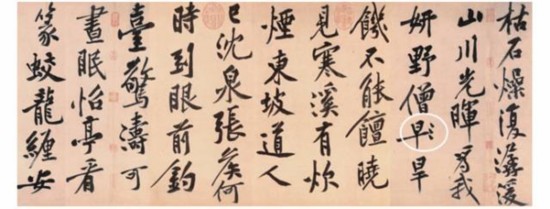 枯石燥復潺湲
山川光暉為我
妍野僧早旱
饑不能饘曉
見寒溪有炊
煙東坡道人
已沈泉張侯何
時到眼前釣
臺驚濤可
晝眠怡亭看
篆蛟龍纏安